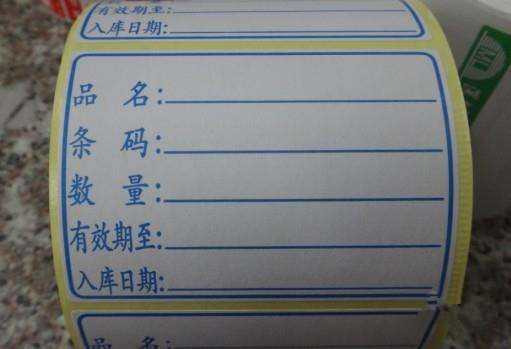 有效期至:
入库日期:
品 名:
条 码:
数 量:
有效期至:
入库日期:
品 名: